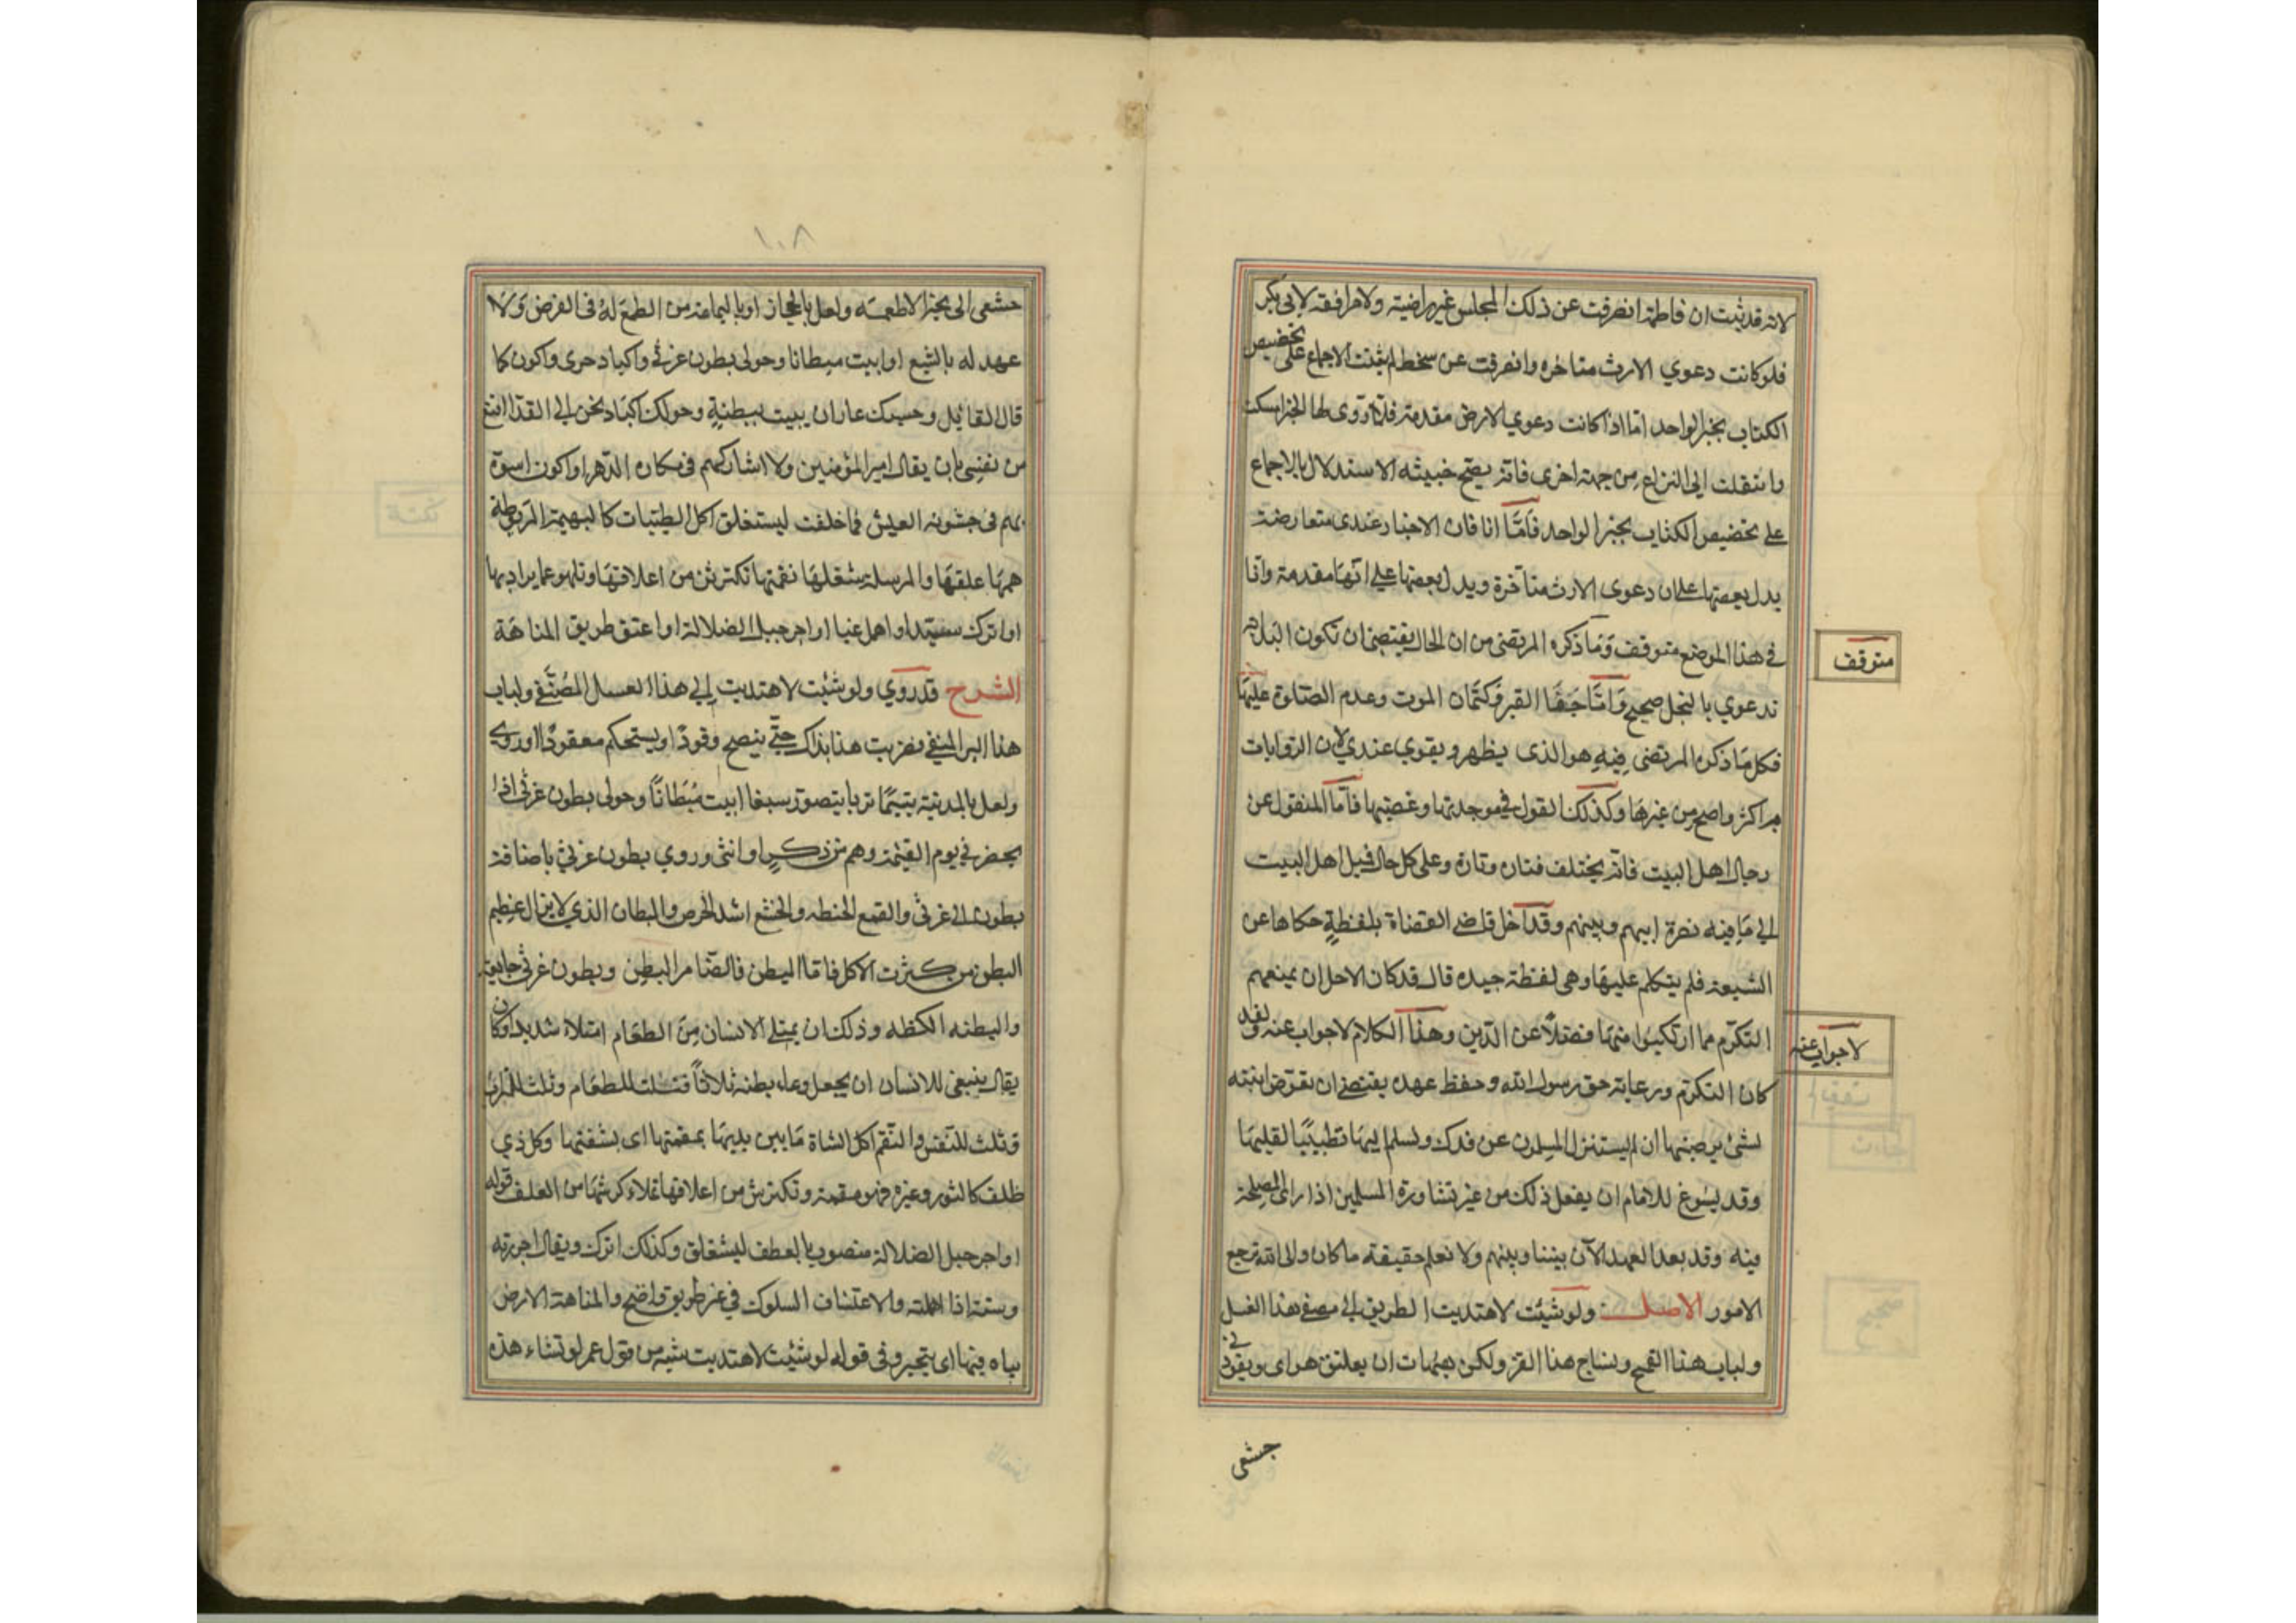 لانه قد ثبت ان فاطمة انصرفت عن ذلك المجلس غير راضية ولا موافقة لابى بكر
فلو كانت دعوي الارث متاخره وانصرفت عن سخط لم يثبت الاجماع على تخصيص
الكتاب بخبر الواحد اما اذا كانت دعوي الارض مقدمة فلما روى لها الخبر امسكت
وانتقلت الى النزاع من جهة اخرى فانه يصح حينئه الاستدلال بالاجماع
على تخصيص الكتاب بخبر الواحد فاما انا فان الاخبار عندى متعارضة
يدل بعضها على ان دعوى الارث متأخرة ويدل بعضها على انها مقدمة وانا
في هذا الموضع متوقف وما ذكره المرتضى من ان الحال يقتضى ان تكون البداية
متوقف
ندعوي بالنحل صحيح واما خفا القبر وكتمان الموت وعدم الصلوة عليها
فكل ما ذكره المرتضى فيه هو الذى يظهر ويقوي عندي لان الروايات
به اكثر واصح من غيرها وكذلك القول في موجدتها وغضبها فاما المنقول عن
رجال اهل البيت فانه يختلف فتارة وتارة وعلى كل حال فميل اهل البيت
الى ما فيه نصرة ابيهم وبينهم وقد اخل قاضى القضاة بلفظة حكاها عن
الشيعة فلم يتكلم عليها وهى لفظة جيده قال قد كان الاجل ان يمنعهم
التكرم مما ارتكبوا منها فضلا عن الدين وهذا الكلام لا جواب عنه ولقد
لا جواب عنه
كان التكرم ورعاية حق رسول الله وحفظ عهده يقتضى ان تعوض ابنته
بشئ يرضيها ان لم يستنزل المسلمون عن فدك وتسلم اليها تطييبا لقلبها
وقد يسوغ للامام ان يفعل ذلك من غير مشاورة المسلمين اذا راى المصلحة
فيه وقد بعد العهد الآن بيننا وبينهم ولا نعلم حقيقة ما كان والى الله ترجع
الامور الاصل ولو شئت لاهتديت الطريق الى مصفى هذا العسل
ولباب هذا القمح ونساج هذا القز ولكن هيهات ان يغلبنى هواى ويقودنى
جشعى
١٠٨
جشعى الى تخير الاطعمه ولعل بالحجاز او باليمامة من لا طمع له فى القرص ولا
عهد له بالشبع او ابيت مبطانا وحولى بطون غرثى واكباد حرى واكون كما
قال القائل وحسبك عارا ان يبيت ببطنة وحولك اكباد تحن الى القد اقنع
من نفسى بان يقال امير المؤمنين ولا اشاركهم فى مكاره الدهر او اكون اسوة
لهم فى جشوبة العيش فما خلقت ليشغلنى اكل الطيبات كالبهيمة المربوطة
همها علفها والمرسلة شغلها تقممها تكترش من اعلافها وتلهو عما يراد بها
او اترك سدى او اهمل عبثا او اجر حبل الضلالة او اعتسف طريق المتاهة
الشرح قد روي ولو شئت لاهتديت الى هذا العسل المصفى ولباب
هذا البر المنقى فضربت هذا بذاك حتى ينضج وقودا ويستحكم معقودا وروى
ولعل بالمدينة يتيما تربا يتضور سغبا ابيت مبطانا وحولى بطون غرثى اذا
يحضرني يوم القيمة وهم من ذكر او انثى وروي بطون غرثى باضافة
بطون الى غرثى والقمح الحنطه والجشع اشد الحرص والمبطان الذي لا يزال عظيم
البطن من كثرت الاكل فاما المبطن فالضامر البطن وبطون غرثى جايعة
والبطنه الكظه وذلك ان يمتلى الانسان من الطعام امتلاء شديدا وكان
يقال ينبغى للانسان ان يجعل وعاء بطنه ثلاثا فثلث للطعام وثلث للشراب
وثلث للنفس والتقمم اكل الشاة ما بين يديها بمقمتها اى بشفتها وكل ذي
ظلف كالثور وغيره فهو مقمة وتكترش من اعلافها تملاء كرشها من العلف قوله
او اجر حبل الضلالة منصوب بالعطف ليشغلنى وكذلك اترك ويقال اجررته
رسنه اذا اهملته والاعتساف السلوك في غير طريق واضح والمتاهة الارض
يتاه فيها اى يتحير وفى قوله لو شئت لاهتديت شبه من قول عمر لو نشاء هذه